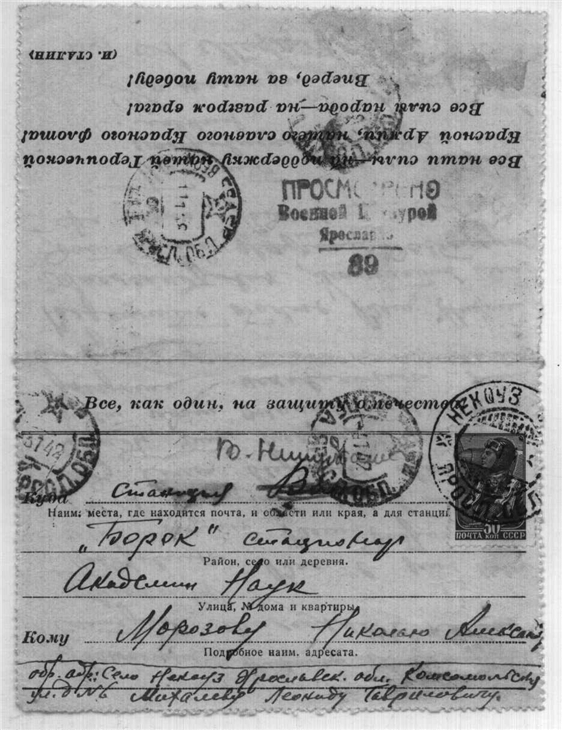 Все наши силы—на поддержку нашей Героической
Красной Армии, нашего славного Красного Флота!
Все силы народа—на разгром врага!
Вперед, за нашу победу!
(И. СТАЛИН)
ПРОСМОТРЕНО
Военной Цензурой
Ярославль
89
Все, как один, на защиту отечества
НЕКОУЗ
ЯРОСЛАВ
50
ПОЧТА КОП СССР
Куда станция
Наим. места, где находится почта, и области или края, а для станций
„Борок" стационар
Район, село или деревня.
Академии Наук
Улица, № дома и квартиры
Кому Морозову Николаю Алексан
Подробное наим. адресата.
обр. адр.: Село Некоуз Ярославск. обл. Комсомольская
д. №6 Михалеву Леониду Гавриловичу.